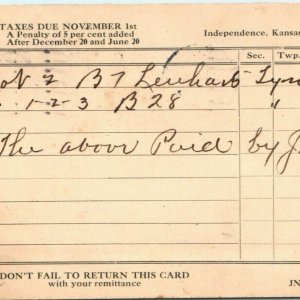 TAXES DUE NOVEMBER 1st
A Penalty of 5 per cent added
After December 20 and June 20
Independence, Kansas
Sec. Twp.
N 2 B7
1-2-3 B28 "
The above Paid by J
DON'T FAIL TO RETURN THIS CARD
with your remittance
JN